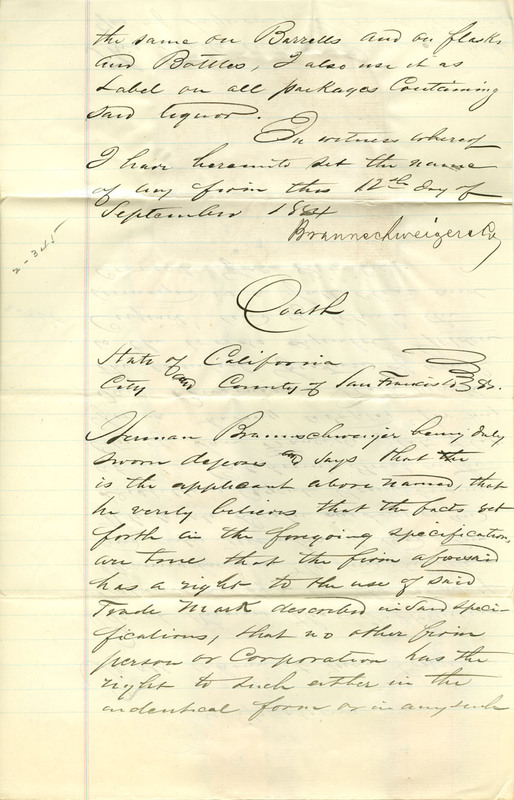 the same on Barrells and on flasks
and Bottles, I also use it as
Label on all packages Containing
said liquor.
In witness whereof
I have hereunto set the name
of my firm this 12th day of
September 1884
Braunschweiger & Co
2-345
Oath
State of California
City and County of San Francisco ss.
Herman Braunschweiger being duly
sworn deposes and says that he
is the applicant above named, that
he verily believes that the facts set
forth in the foregoing specifications,
are true that the firm aforesaid
has a right to the use of said
Trade Mark described in said speci-
fications, that no other firm
person or Corporation has the
right to such either in the
indentical form or in any such